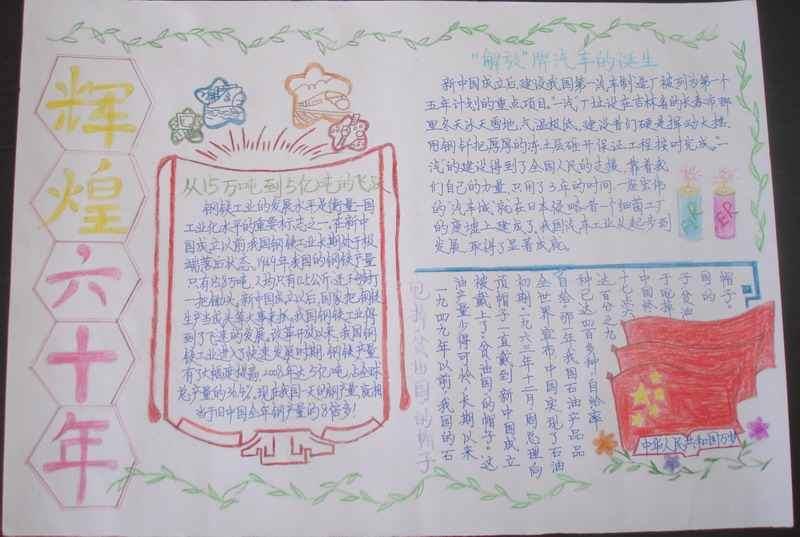 辉煌六十年
从15万吨到5亿吨的飞跃
钢铁工业的发展水平是衡量一国
工业化水平的重要标志之一。在新中
国成立以前,我国钢铁工业长期处于极
端落后状态。1949年我国的钢铁产量
只有15.8万吨,人均只有0.5公斤,还不够打
一把锄头。新中国成立以后,国家把钢铁
生产当成头等大事来抓,我国钢铁业得
到了飞速的发展。改革开放以来,我国钢
铁工业进入了快速发展时期,钢铁产量
有了大幅度提高,2008年达5亿吨,占全球
总产量的36.4%,现在我国一天的钢产量,就相
当于旧中国全年钢产量的8倍多!
"解放"牌汽车的诞生
新中国成立后,建设我国第一汽车制造厂被列为第一个
五年计划的重点项目。一汽厂址设在吉林省的长春市,那
里冬天冰天雪地,气温极低。建设者们硬是挥动大镐,
用钢钎把厚厚的冻土层砸开,保证工程按时完成。"一
汽"的建设得到了全国人民的支援,靠着我
们自己的力量,只用了3年的时间,一座宏伟
的"汽车城",就在日本侵略者一个细菌工厂
的废墟上建成了。我国汽车工业从起步到
发展,取得了显著成就。
甩掉"贫油国"的帽子
一九四九年以前,我国的石
油产量少得可怜,长期以来
被戴上了"贫油国"的帽子。这
顶帽子一直戴到新中国成立
初期。一九六三年十二月,周总理向
全世界宣布,中国实现了石油
自给。那一年,我国石油产品品
种已达四百多种,自给率
达百分之九
十七点六
中国终
于甩掉
子"贫油
国"的
帽子。
中华人民共和国万岁